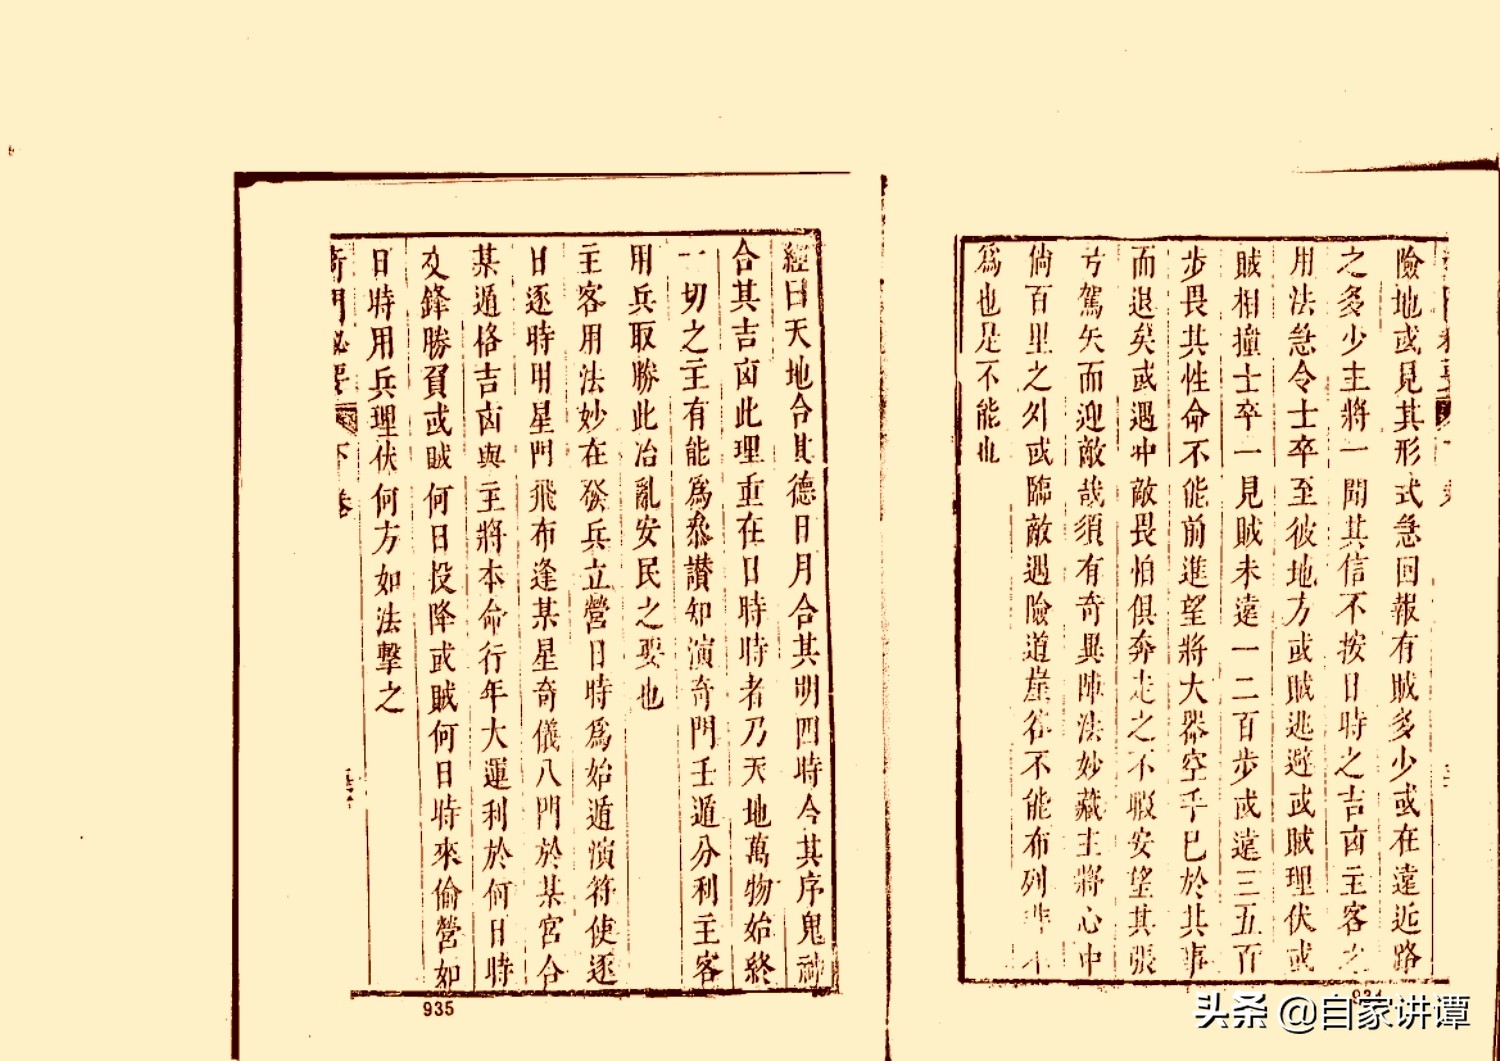 險地或見其形式急回報有賊多少或在遠近路
之多少主將一聞其信不按日時之吉凶主客之
用法急令士卒至彼地方或賊逃避或賊理伏或
賊相撞士卒一見賊未遠一二百步或遠三五百
步畏其性命不能前進望將大器空千已於其事
而退矣或遇中敵畏怕俱奔走之不暇安望其張
弓駕矢而迎敵哉須有奇異陣法妙藏主將心中
倘百里之外或臨敵遇險道崖谷不能布列非不
爲也是不能也
經曰天地合其德日月合其明四時合其序鬼神
合其吉凶此理重在日時時者乃天地萬物始終
一切之主有能爲叅讃知演奇門壬遁分利主客
用兵取勝此冶亂安民之要也
主客用法妙在發兵立營日時爲始遁演符使逐
日逐時用星門飛布逢某星奇儀八門於某宮合
某遁格吉凶與主將本命行年大運利於何日時
交鋒勝負或賊何日投降或賊何日時來偷營如
日時用兵理伏何方如法擊之
奇門秘要 下卷
935
934
头条 @自家讲谭